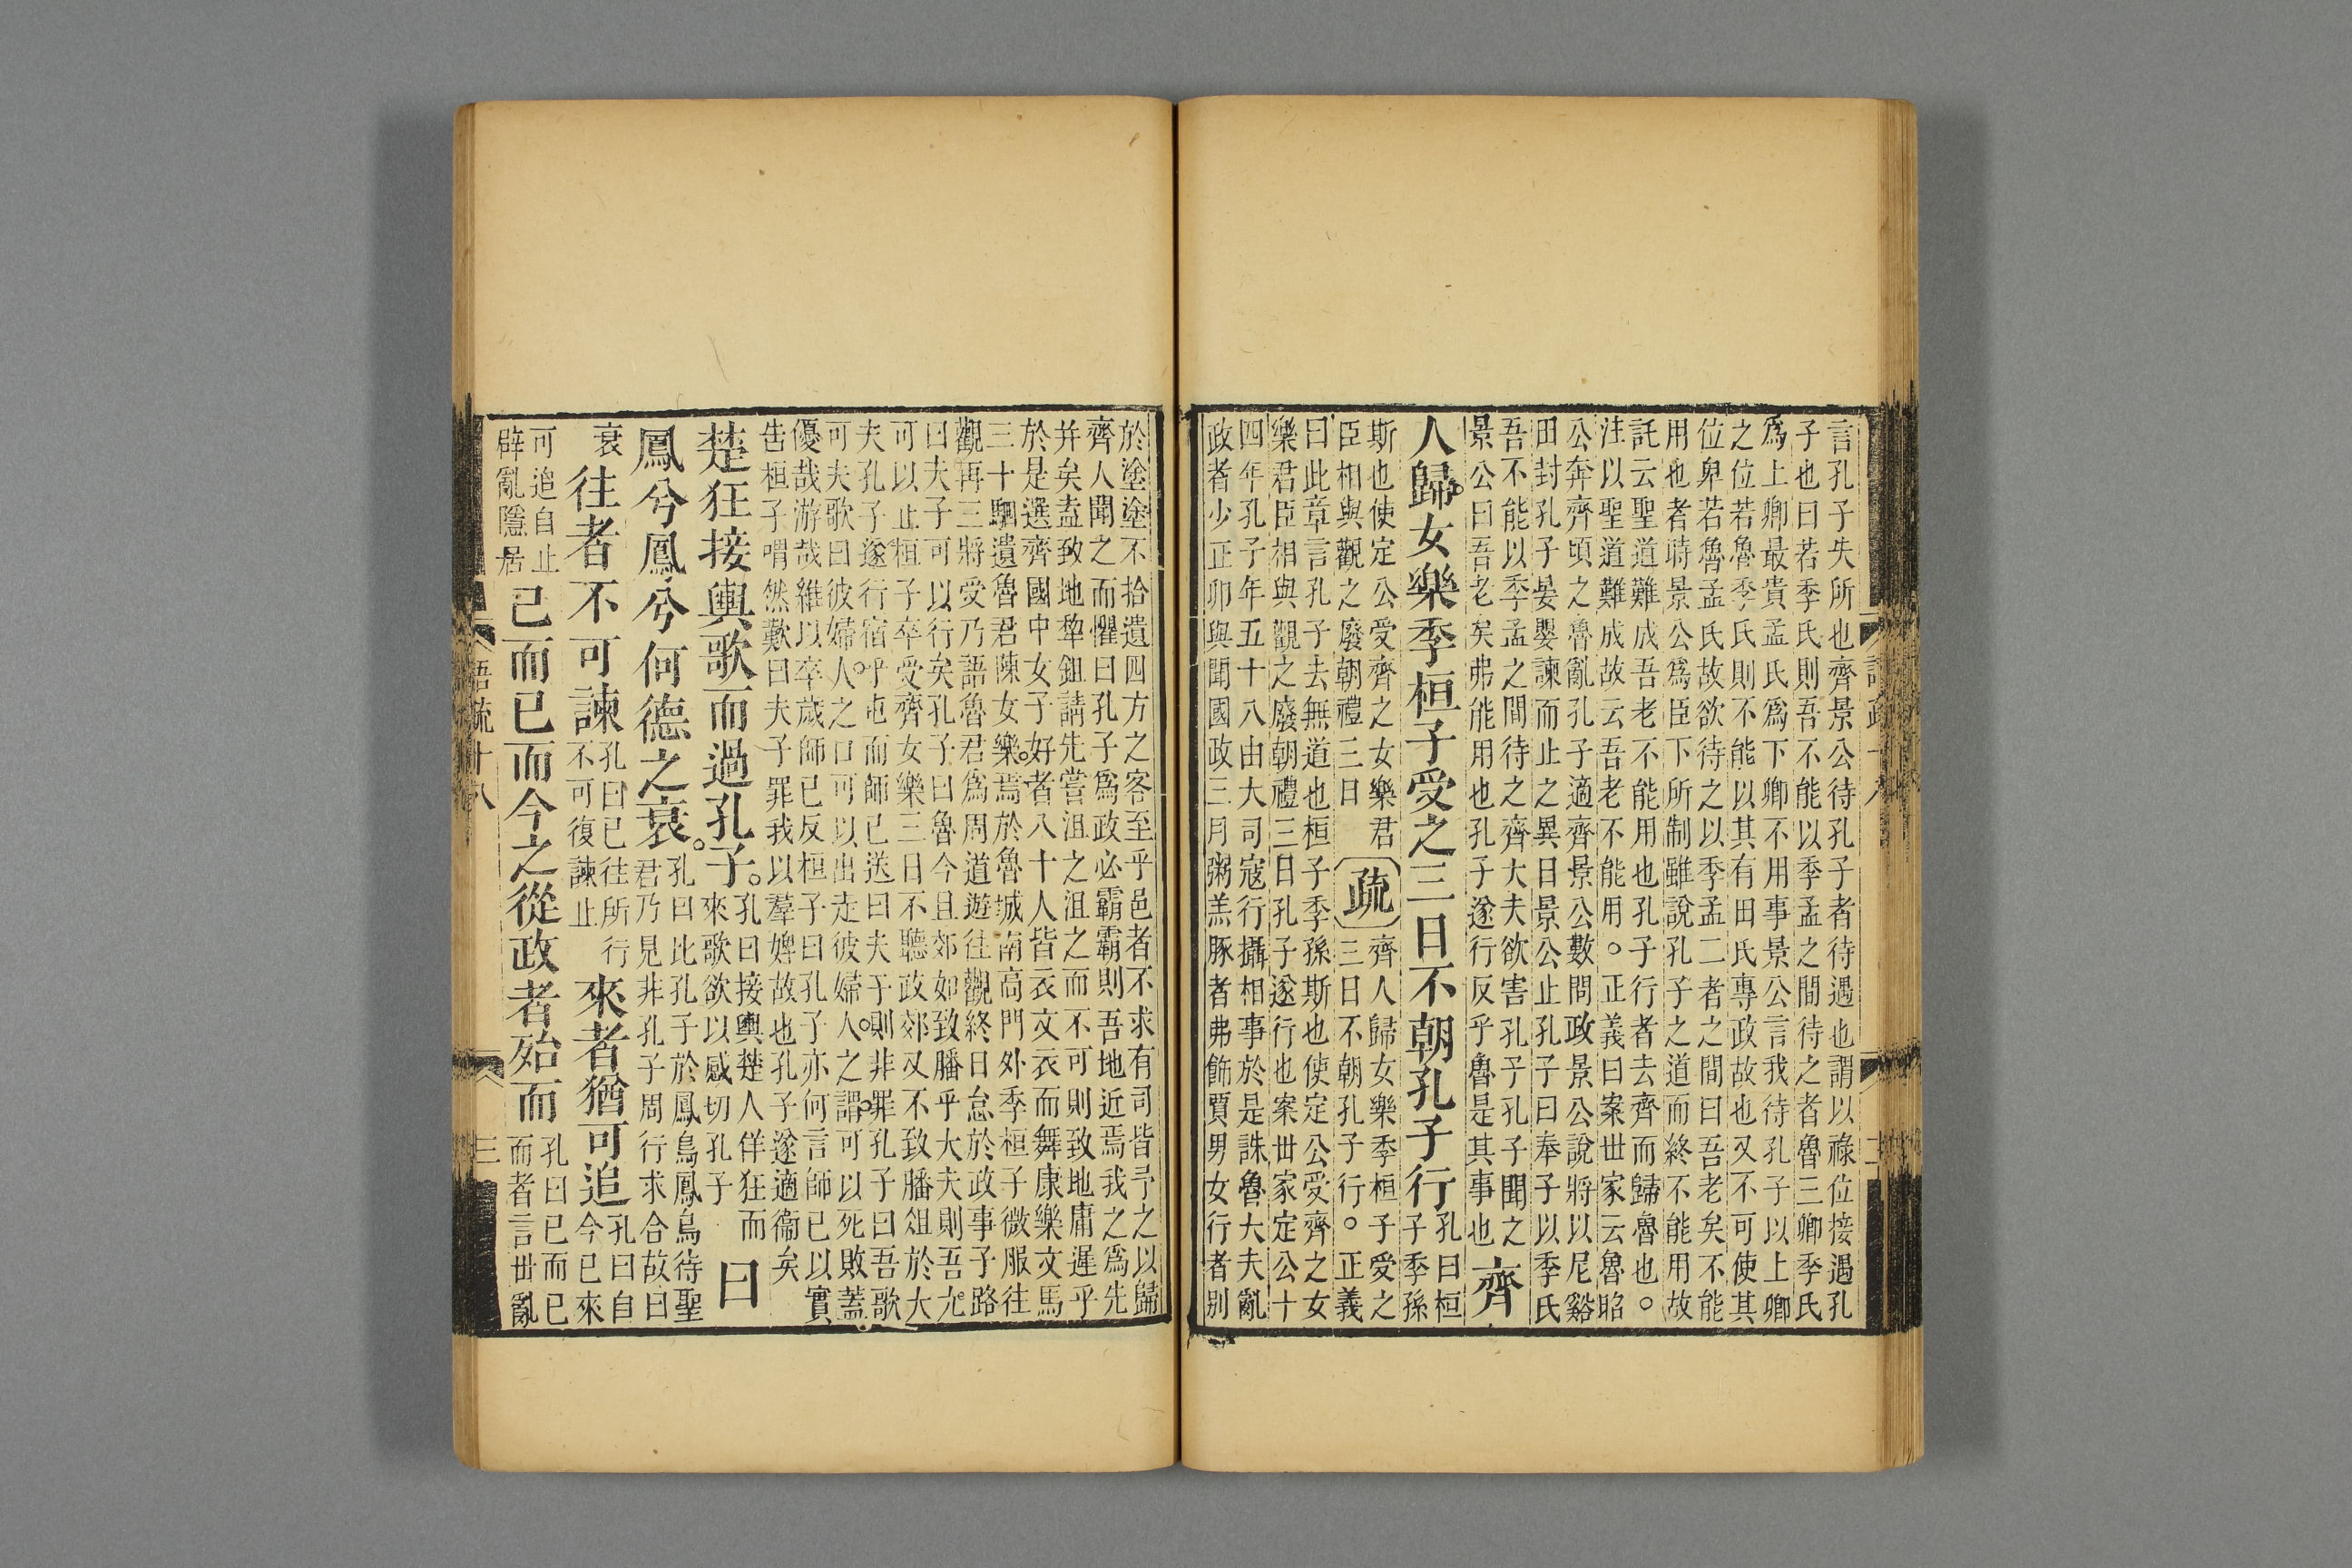 言孔子失所也齊景公待孔子者待遇也謂以祿位接遇孔
子也曰若季氏則吾不能以季孟之間待之者魯三卿季氏
爲上卿最貴孟氏爲下卿不用事景公言我待孔子以上卿
之位若魯季氏則不能以其有田氏專政故也又不可使其
位卑若魯孟氏故欲待之以季孟二者之間曰吾老矣不能
用也者時景公爲臣下所制雖說孔子之道而終不能用故
託云聖道難成吾老不能用也孔子行者去齊而歸魯也。
注以聖道難成故云吾老不能用。正義曰案世家云魯昭
公奔齊頃之魯亂孔子適齊景公數問政景公說將以尼谿
田封孔子晏嬰諫而止之異日景公止孔子曰奉子以季氏
吾不能以季孟之間待之齊大夫欲害孔子孔子聞之
景公曰吾老矣弗能用也孔子遂行反乎魯是其事也
齊
人歸女樂季桓子受之三日不朝孔子行
孔曰桓
子季孫
斯也使定公受齊之女樂君
臣相與觀之廢朝禮三日
疏
齊人歸女樂季桓子受之
三日不朝孔子行。正義
曰此章言孔子去無道也桓子季孫斯也使定公受齊之女
樂君臣相與觀之廢朝禮三日孔子遂行也案世家定公十
四年孔子年五十八由大司寇行攝相事於是誅魯大夫亂
政者少正卯與聞國政三月粥羔豚者弗飾賈男女行者别
於塗塗不拾遺四方之客至乎邑者不求有司皆予之以歸
齊人聞之而懼曰孔子爲政必霸霸則吾地近焉我之爲先
并矣盍致地犂鉏請先嘗沮之沮之而不可則致地庸遲乎
於是選齊國中女子好者八十人皆衣文衣而舞康樂文馬
三十駟遺魯君陳女樂焉於魯城南高門外季桓子微服往
觀再三將受乃語魯君爲周道遊往觀終日怠於政事子路
曰夫子可以行矣孔子曰魯今且郊如致膰乎大夫則吾尤
可以止桓子卒受齊女樂三日不聽政郊又不致膰俎於大
夫孔子遂行宿乎屯而師已送曰夫子則非罪孔子曰吾歌
可夫歌曰彼婦人之口可以出走彼婦人之謂可以死敗蓋
優哉游哉維以卒歲師已反桓子曰孔子亦何言師已以實
告桓子喟然歎曰夫子罪我以羣婢故也孔子遂適衞矣
楚狂接輿歌而過孔子。
孔曰接輿楚人佯狂而
來歌欲以感切孔子
曰
鳳兮鳳兮何德之衰。
孔曰比孔子於鳳鳥鳳鳥待聖
君乃見非孔子周行求合故曰
衰
往者不可諫
孔曰已往所行
不可復諫止
來者猶可追
孔曰自
今已來
可追自止
辟亂隱居
已而已而今之從政者殆而
孔曰已而已
而者言世亂
語疏十八
三